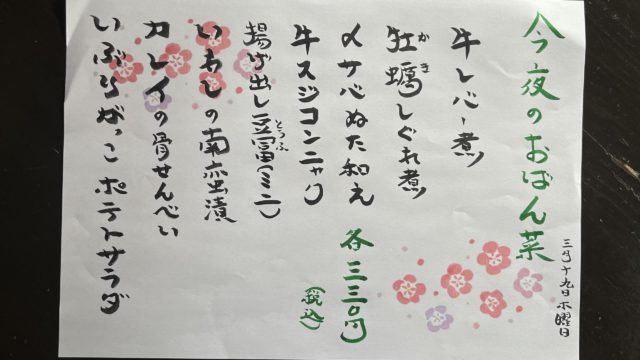 今夜のおばん菜
三月十九日木曜日
牛レバー煮
牡蠣しぐれ煮
かき
〆サバぬた和え
牛スジコンニャク
揚げ出し豆富(ミニ)
とうふ
いわしの南蛮漬
カレイの骨せんべい
いぶりがっこポテトサラダ
各三三〇円
(税込)